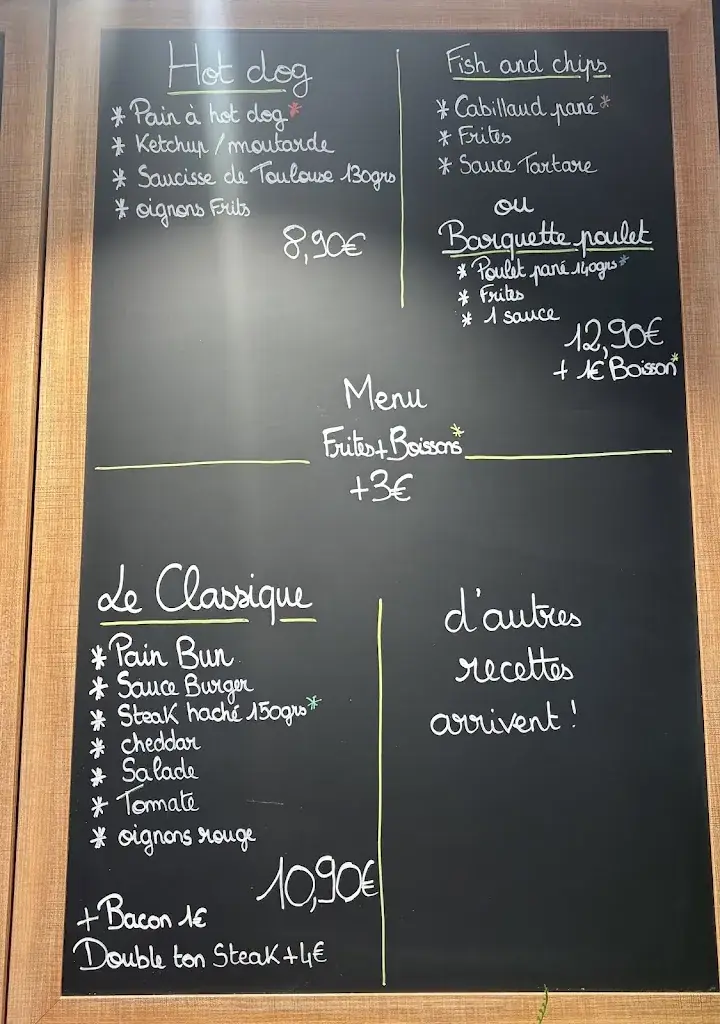 Hot dog
* Pain à hot dog*
* Ketchup / moutarde
* Saucisse de Toulouse 130grs
* oignons Frits
8,90€
Fish and chips
* Cabillaud pané*
* Frites
* Sauce Tartare
ou
Barquette poulet
* Poulet pané 140grs*
* Frites
* 1 sauce
12,90€
+ 1€ Boisson*
Menu
Frites+Boissons*
+3€
Le Classique
* Pain Bun
* Sauce Burger
* Steak haché 150grs*
* cheddar
* Salade
* Tomate
* oignons rouge
10,90€
+ Bacon 1€
Double ton Steak +4€
d'autres
recettes
arrivent !